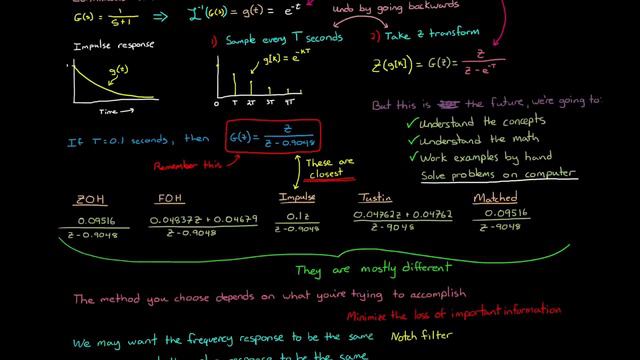 G(s) = 1/(s+1) ⇒ ℒ⁻¹(G(s)) = g(t) = e^-t
undo by going backwards
Impulse response
1) Sample every T seconds
2) Take Z transform
g(t)
g[k] = e^-kT
Z(g[k]) = G(z) = z/(z - e^-T)
0 T 2T 3T 4T
Time →
But this is the future, we're going to:
✓ Understand the concepts
✓ Understand the math
✓ Work examples by hand
Solve problems on computer
If T=0.1 seconds, then G(z) = z/(z - 0.9048)
Remember this
These are closest
ZOH FOH Impulse Tustin Matched
0.09516/(z - 0.9048) (0.04837z + 0.04679)/(z - 0.9048) 0.1z/(z - 0.9048) (0.04762z + 0.04762)/(z - 9048) 0.09516/(z - 9048)
They are mostly different
The method you choose depends on what you're trying to accomplish
Minimize the loss of important information
We may want the frequency response to be the same Notch filter